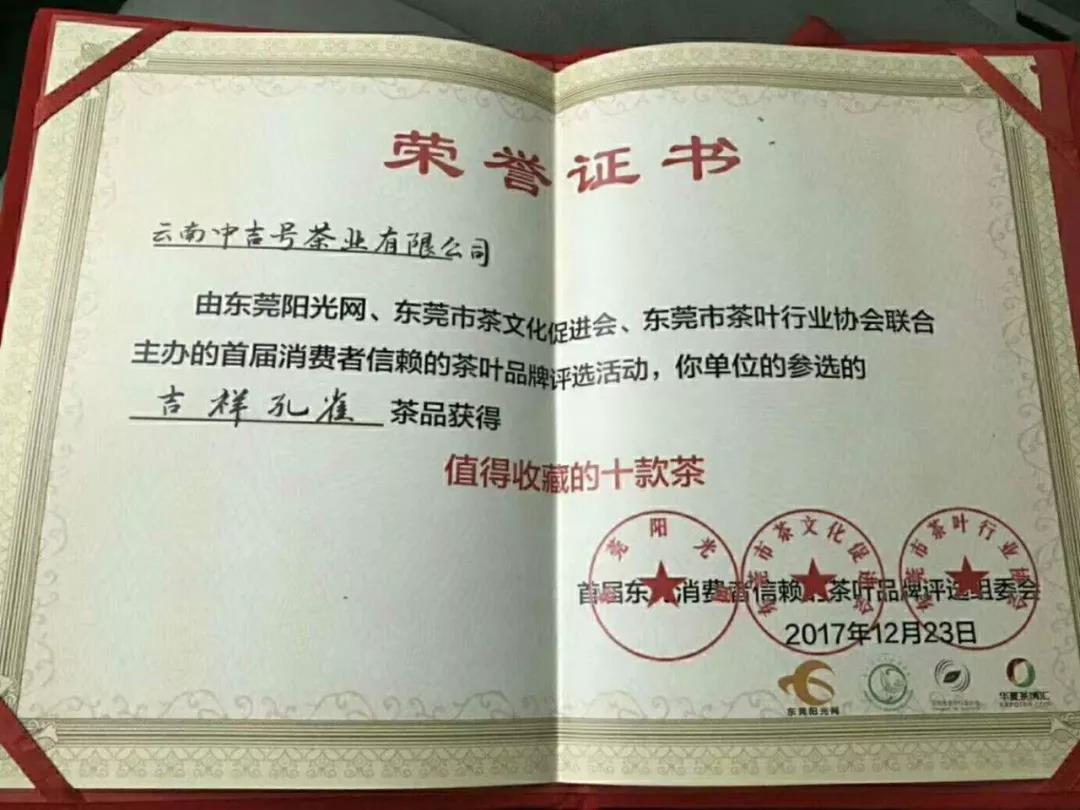 荣誉证书
云南中吉号茶业有限公司
由东莞阳光网、东莞市茶文化促进会、东莞市茶叶行业协会联合
主办的首届消费者信赖的茶叶品牌评选活动，你单位的参选的
吉祥孔雀 茶品获得
值得收藏的十款茶
莞阳光
莞市茶文化促进会
莞市茶叶行业协会
首届东莞消费者信赖的茶叶品牌评选组委会
2017年12月23日
东莞阳光网
华夏茶博汇